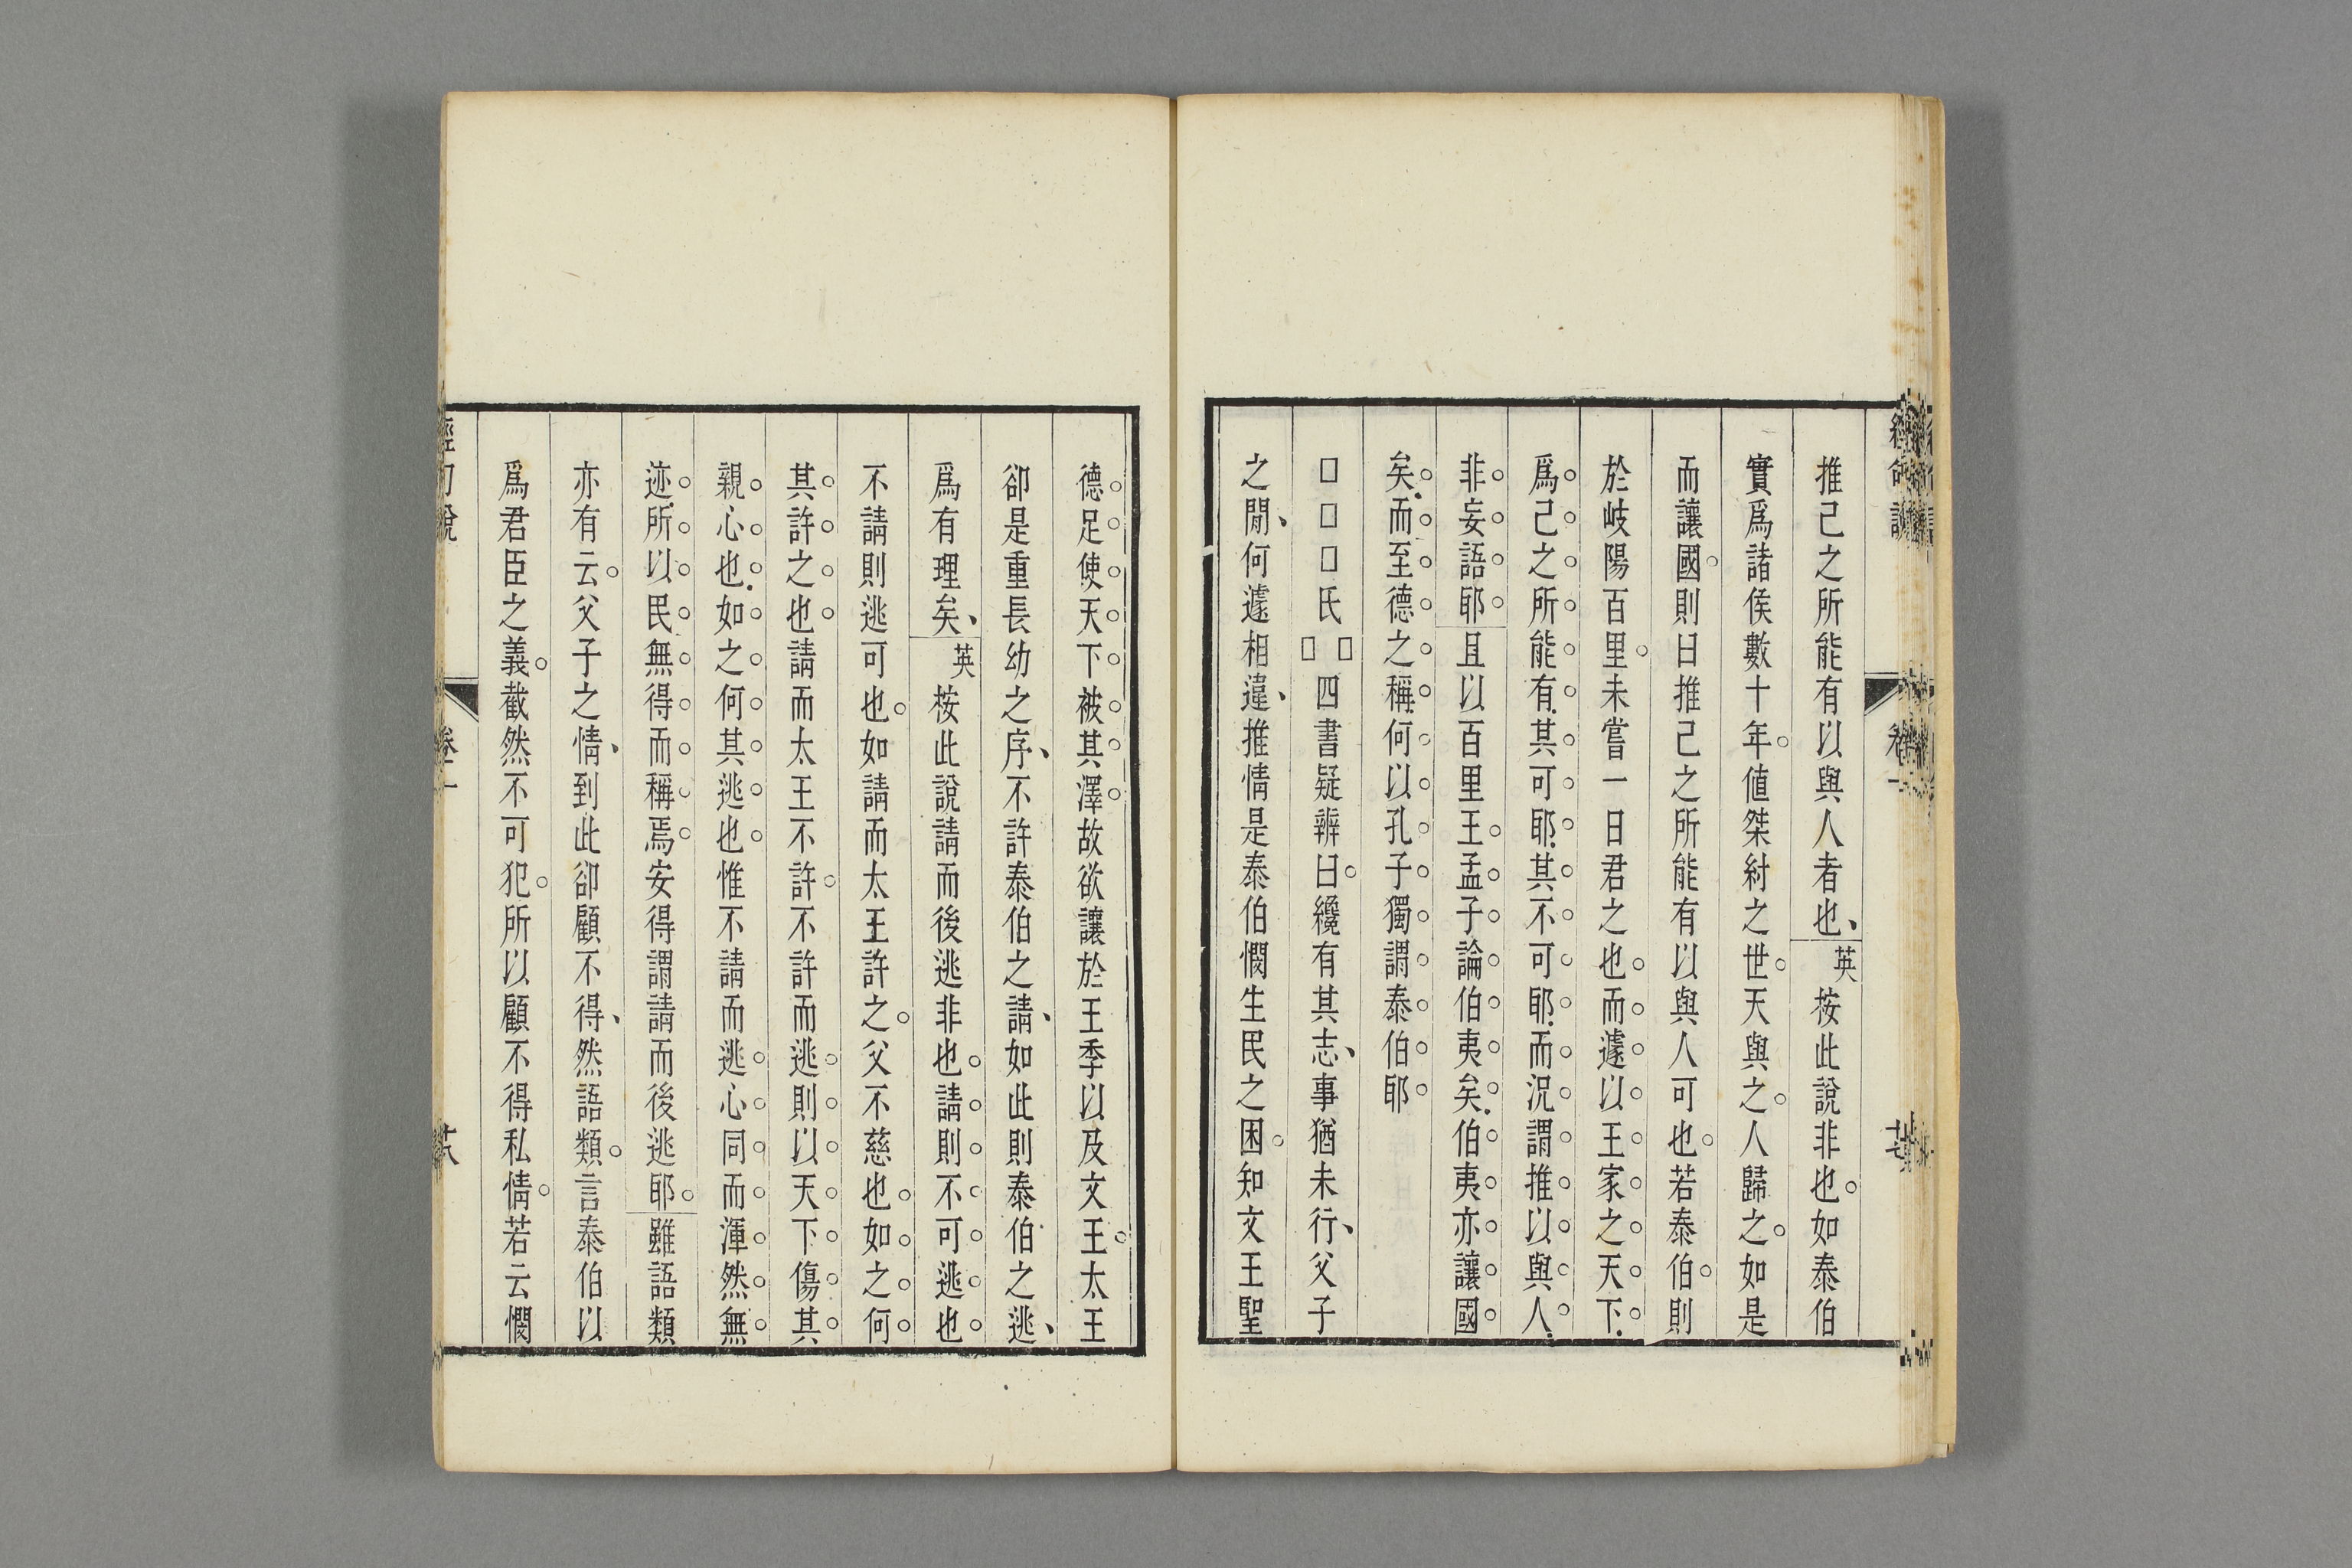 推己之所能有以與人者也、英按此說非也。如泰伯
實爲諸侯數十年。値桀紂之世。天與之。人歸之。如是
而讓國。則曰推己之所能有以與人可也。若泰伯。則
於岐陽百里。未嘗一日君之也。而遽以王家之天下。
爲己之所能有。其可耶。其不可耶。而況謂推以與人。
非妄語耶。且以百里王。孟子論伯夷矣。伯夷亦讓國
矣。而至德之稱。何以孔子獨謂泰伯耶
□□□氏□□四書疑辨曰。纔有其志、事猶未行、父子
之閒、何遽相違、推情是泰伯憫生民之困。知文王聖
德足使天下被其澤。故欲讓於王季以及文王。太王
卻是重長幼之序、不許泰伯之請、如此則泰伯之逃、
爲有理矣、英按此說請而後逃非也。請則不可逃也。
不請則逃可也。如請而太王許之。父不慈也。如之何
其許之也。請而太王不許。不許而逃。則以天下傷其
親心也。如之何其逃也。惟不請而逃。心同而渾然無
迹。所以民無得而稱焉。安得謂請而後逃耶。雖語類
亦有云。父子之情、到此卻顧不得、然語類。言泰伯以
爲君臣之義。截然不可犯。所以顧不得私情。若云憫
經句說
卷一